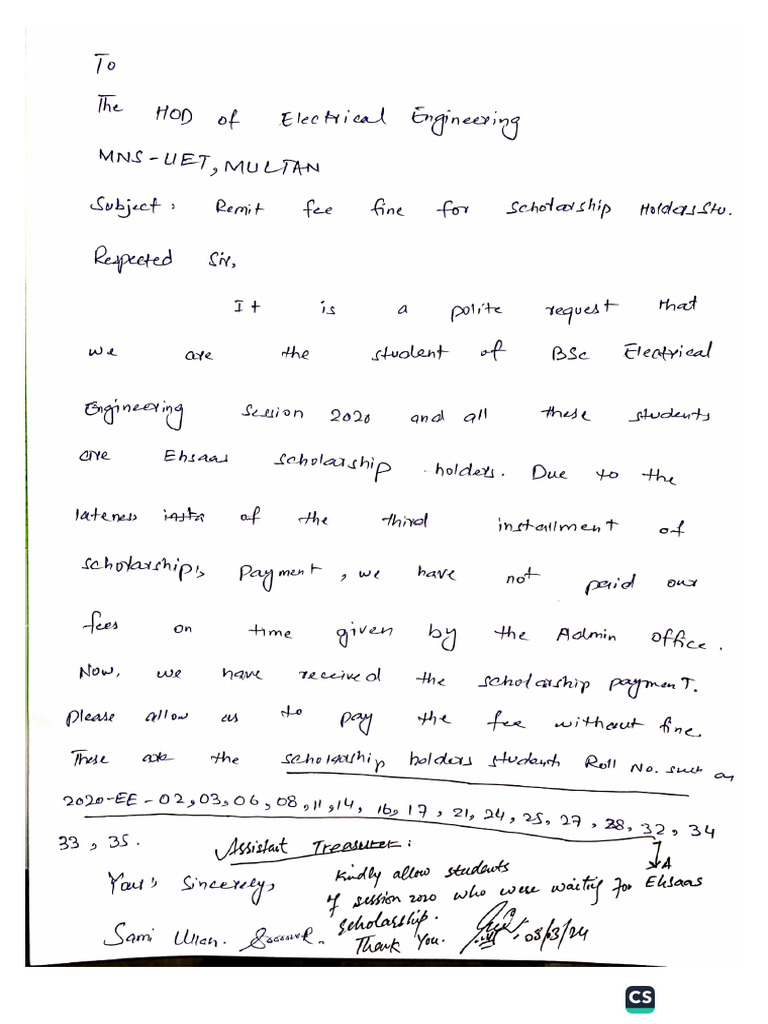 To
The HOD of Electrical Engineering
MNS-UET, MULTAN
Subject: Remit fee fine for scholarship Holders Stu.
Respected Sir,
It is a polite request that
we are the student of BSc Electrical
Engineering session 2020 and all these students
are Ehsaas scholarship holders. Due to the
lateness of the third installment of
scholarship's payment, we have not paid our
fees on time given by the Admin office.
Now, we have received the scholarship payment.
please allow us to pay the fee without fine.
These are the scholarship holders students Roll No. such as
2020-EE-02,03,06,08,11,14, 16, 17, 21, 24, 25, 27, 28, 32, 34
33, 35.
Assistant Treasurer:
Kindly allow students
of session 2020 who were waiting for Ehsaas
scholarship.
Thank You.
08/3/24
Your's Sincerely,
Sami Ullah.
CS